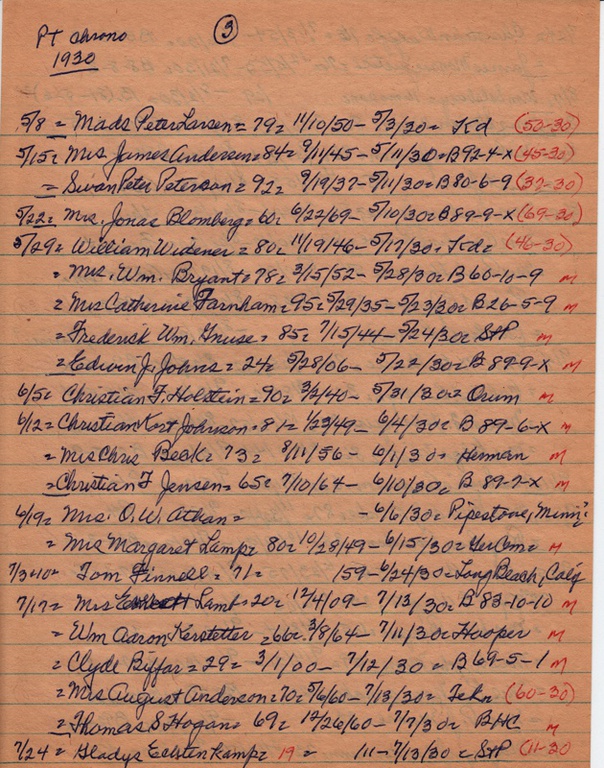 PT Chrono ③
1930
5/8 = Mads Peter Larsen = 79 = 11/10/50 - 5/3/30 = Kd (50-30)
5/15 = Mrs James Andersen = 84 = 9/11/45 - 5/11/30 = B 92-4-X (45-30)
= Swan Peter Peterson = 92 = 9/19/37 - 5/11/30 = B 80-6-9 (37-30)
5/22 = Mrs. Jonas Blomberg = 60 = 6/22/69 - 5/10/30 = B 89-9-X (69-30)
5/29 = William Widener = 80 = 11/19/46 - 5/17/30 = Kd = (46-30)
= Mrs. Wm. Bryant = 78 = 3/15/52 - 5/28/30 = B 60-10-9 M
= Mrs Catherine Farnham = 95 = 5/29/35 - 5/23/30 = B 26-5-9 M
= Frederick Wm. Gnuse = 85 = 7/15/44 - 5/24/30 = StP M
= Edwin J. Johns = 24 = 5/28/06 - 5/22/30 = B 89-9-X M
6/5 = Christian F. Holstein = 90 = 3/2/40 - 5/31/30 = Orum M
6/12 = Christian Kort Johnson = 81 = 1/23/49 - 6/4/30 = B 89-6-X M
= Mrs Chris Beck = 73 = 8/11/56 - 6/1/30 = Herman M
= Christian F Jensen = 65 = 7/10/64 - 6/10/30 = B 89-7-X M
6/19 = Mrs. O. W. Athan = - 6/6/30 = Pipestone, Minn
= Mrs Margaret Lamp = 80 = 10/28/49 - 6/15/30 = Ger Cm = M
7/3 = 10 = Tom Finnell = 71 = 159 - 6/24/30 = Long Beach, Calif
7/17 = Mrs Lamb = 20 = 12/4/09 - 7/13/30 = B 83-10-10 M
= Wm Aaron Kerstetter = 66 = 3/8/64 - 7/11/30 = Hooper M
= Clyde Biffar = 29 = 3/1/00 - 7/12/30 = B 69-5-1 M
= Mrs August Anderson = 70 = 5/6/60 - 7/13/30 = Tekn (60-30)
= Thomas S Hogan = 69 = 12/26/60 - 7/7/30 = BHC M
7/24 = Gladys Echtenkamp = 19 = /11 - 7/13/30 = StP (11-30